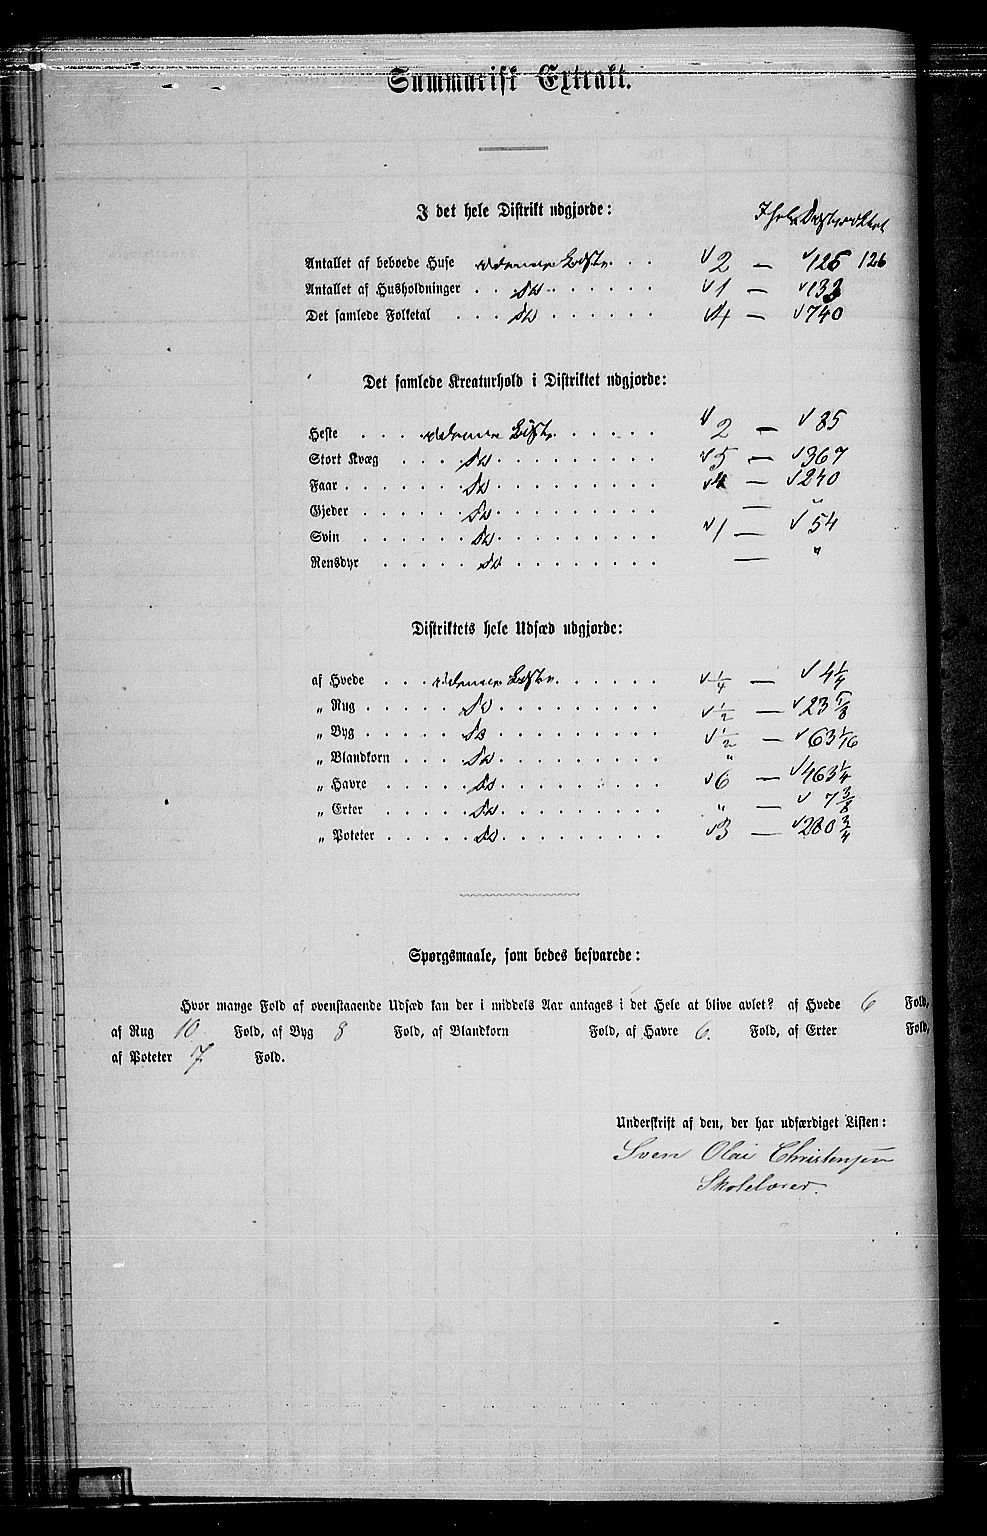 Summarisk Extrakt.
I det hele Distrikt udgjorde:
I hele Destrektet
Antallet af beboede Huse . . 2 — 126 126
Antallet af Husholdninger . . Do . . . . . . 1 — 133
Det samlede Folketal . . . Do . . . . . . 4 — 740
Det samlede Kreaturhold i Distriktet udgjorde:
Heste . . . . . . . . . . 2 — 85
Stort Kvæg . . . Do . . . . . . . . . 5 — 367
Faar . . . . . . Do . . . . . . . . . 4 — 240
Gjeder . . . . . Do . . . . . . . . . — "
Svin . . . . . Do . . . . . . . . . 1 — 54
Rensdyr . . . . . Do . . . . . . . . — "
Distriktets hele Udsæd udgjorde:
af Hvede . . . . . . . . . 1/4 — 4 1/4
„ Rug . . . . . Do . . . . . . . . . 1/2 — 23 5/8
„ Byg . . . . . Do . . . . . . . . . 1/2 — 63 1/16
„ Blandkorn . . . Do . . . . . . . . . "
„ Havre . . . . . Do . . . . . . . . 6 — 463 1/4
„ Erter . . . . . Do . . . . . . . . " — 7 3/8
„ Poteter . . . . Do . . . . . . . . 3 — 280 3/4
Spørgsmaale, som bedes besvarede:
Hvor mange Fold af ovenstaaende Udsæd kan der i middels Aar antages i det Hele at blive avlet? af Hvede 6 Fold,
af Rug 10 Fold, af Byg 8 Fold, af Blandkorn Fold, af Havre 6. Fold, af Erter Fold,
af Poteter 7. Fold.
Underskrift af den, der har udfærdiget Listen:
Sven Olai Christensen
Skolelærer.